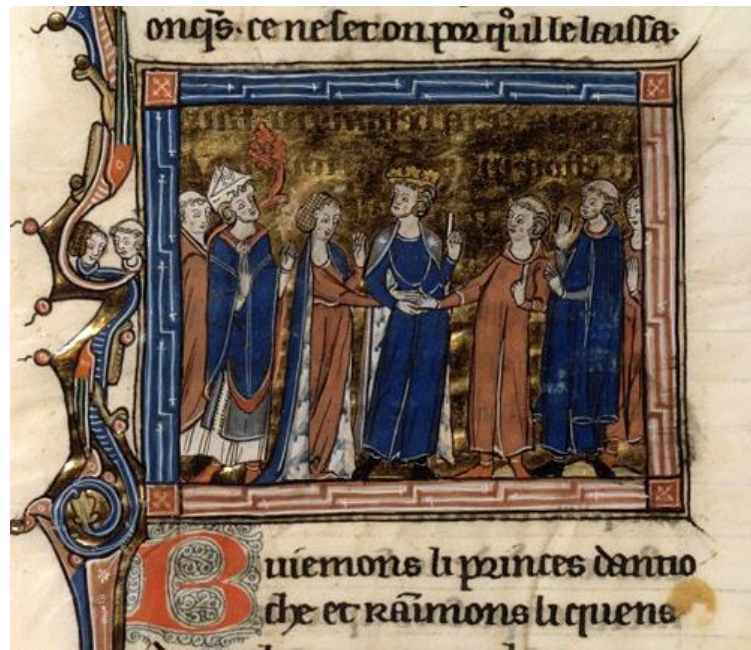 onq̃s. ce ne set on por qͥl le laissa.
Buiemons li princes dantio
che et Raĩmons li quens